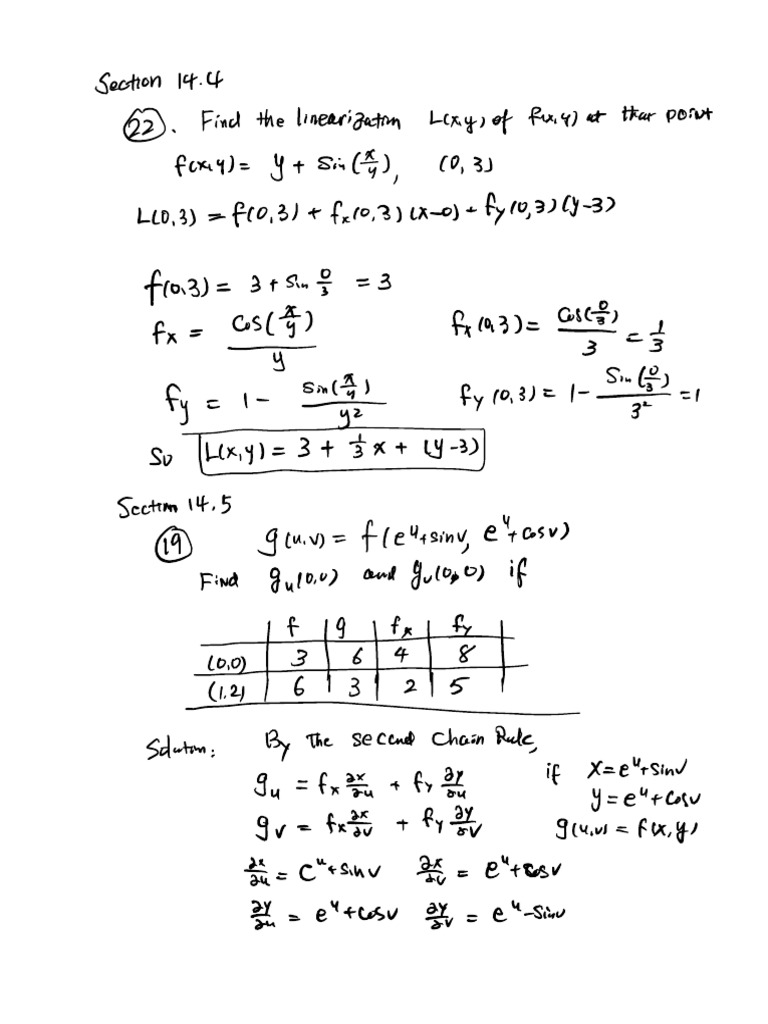 Section 14.4
22. Find the linearization L(x,y) of f(x,y) at that point
f(x,y) = y + sin(x/y), (0, 3)
L(0,3) = f(0,3) + fx(0,3)(x-0) + fy(0,3)(y-3)
f(0,3) = 3 + sin 0/3 = 3
fx = cos(x/y)/y fx(0,3) = cos(0/3)/3 = 1/3
fy = 1 - sin(x/y)/y² fy(0,3) = 1 - sin(0/3)/3² = 1
So L(x,y) = 3 + 1/3 x + (y-3)
Section 14.5
19 g(u,v) = f(e^u+sinv, e^u+cosv)
Find gu(0,0) and gv(0,0) if
f g fx fy
(0,0) 3 6 4 8
(1,2) 6 3 2 5
Solution: By The second Chain Rule,
if x=e^u+sinv
gu = fx ∂x/∂u + fy ∂y/∂u
y=e^u+cosv
gv = fx ∂x/∂v + fy ∂y/∂v
g(u,v) = f(x,y)
∂x/∂u = e^u+sinv ∂x/∂v = e^u+cosv
∂y/∂u = e^u+cosv ∂y/∂v = e^u-sinv